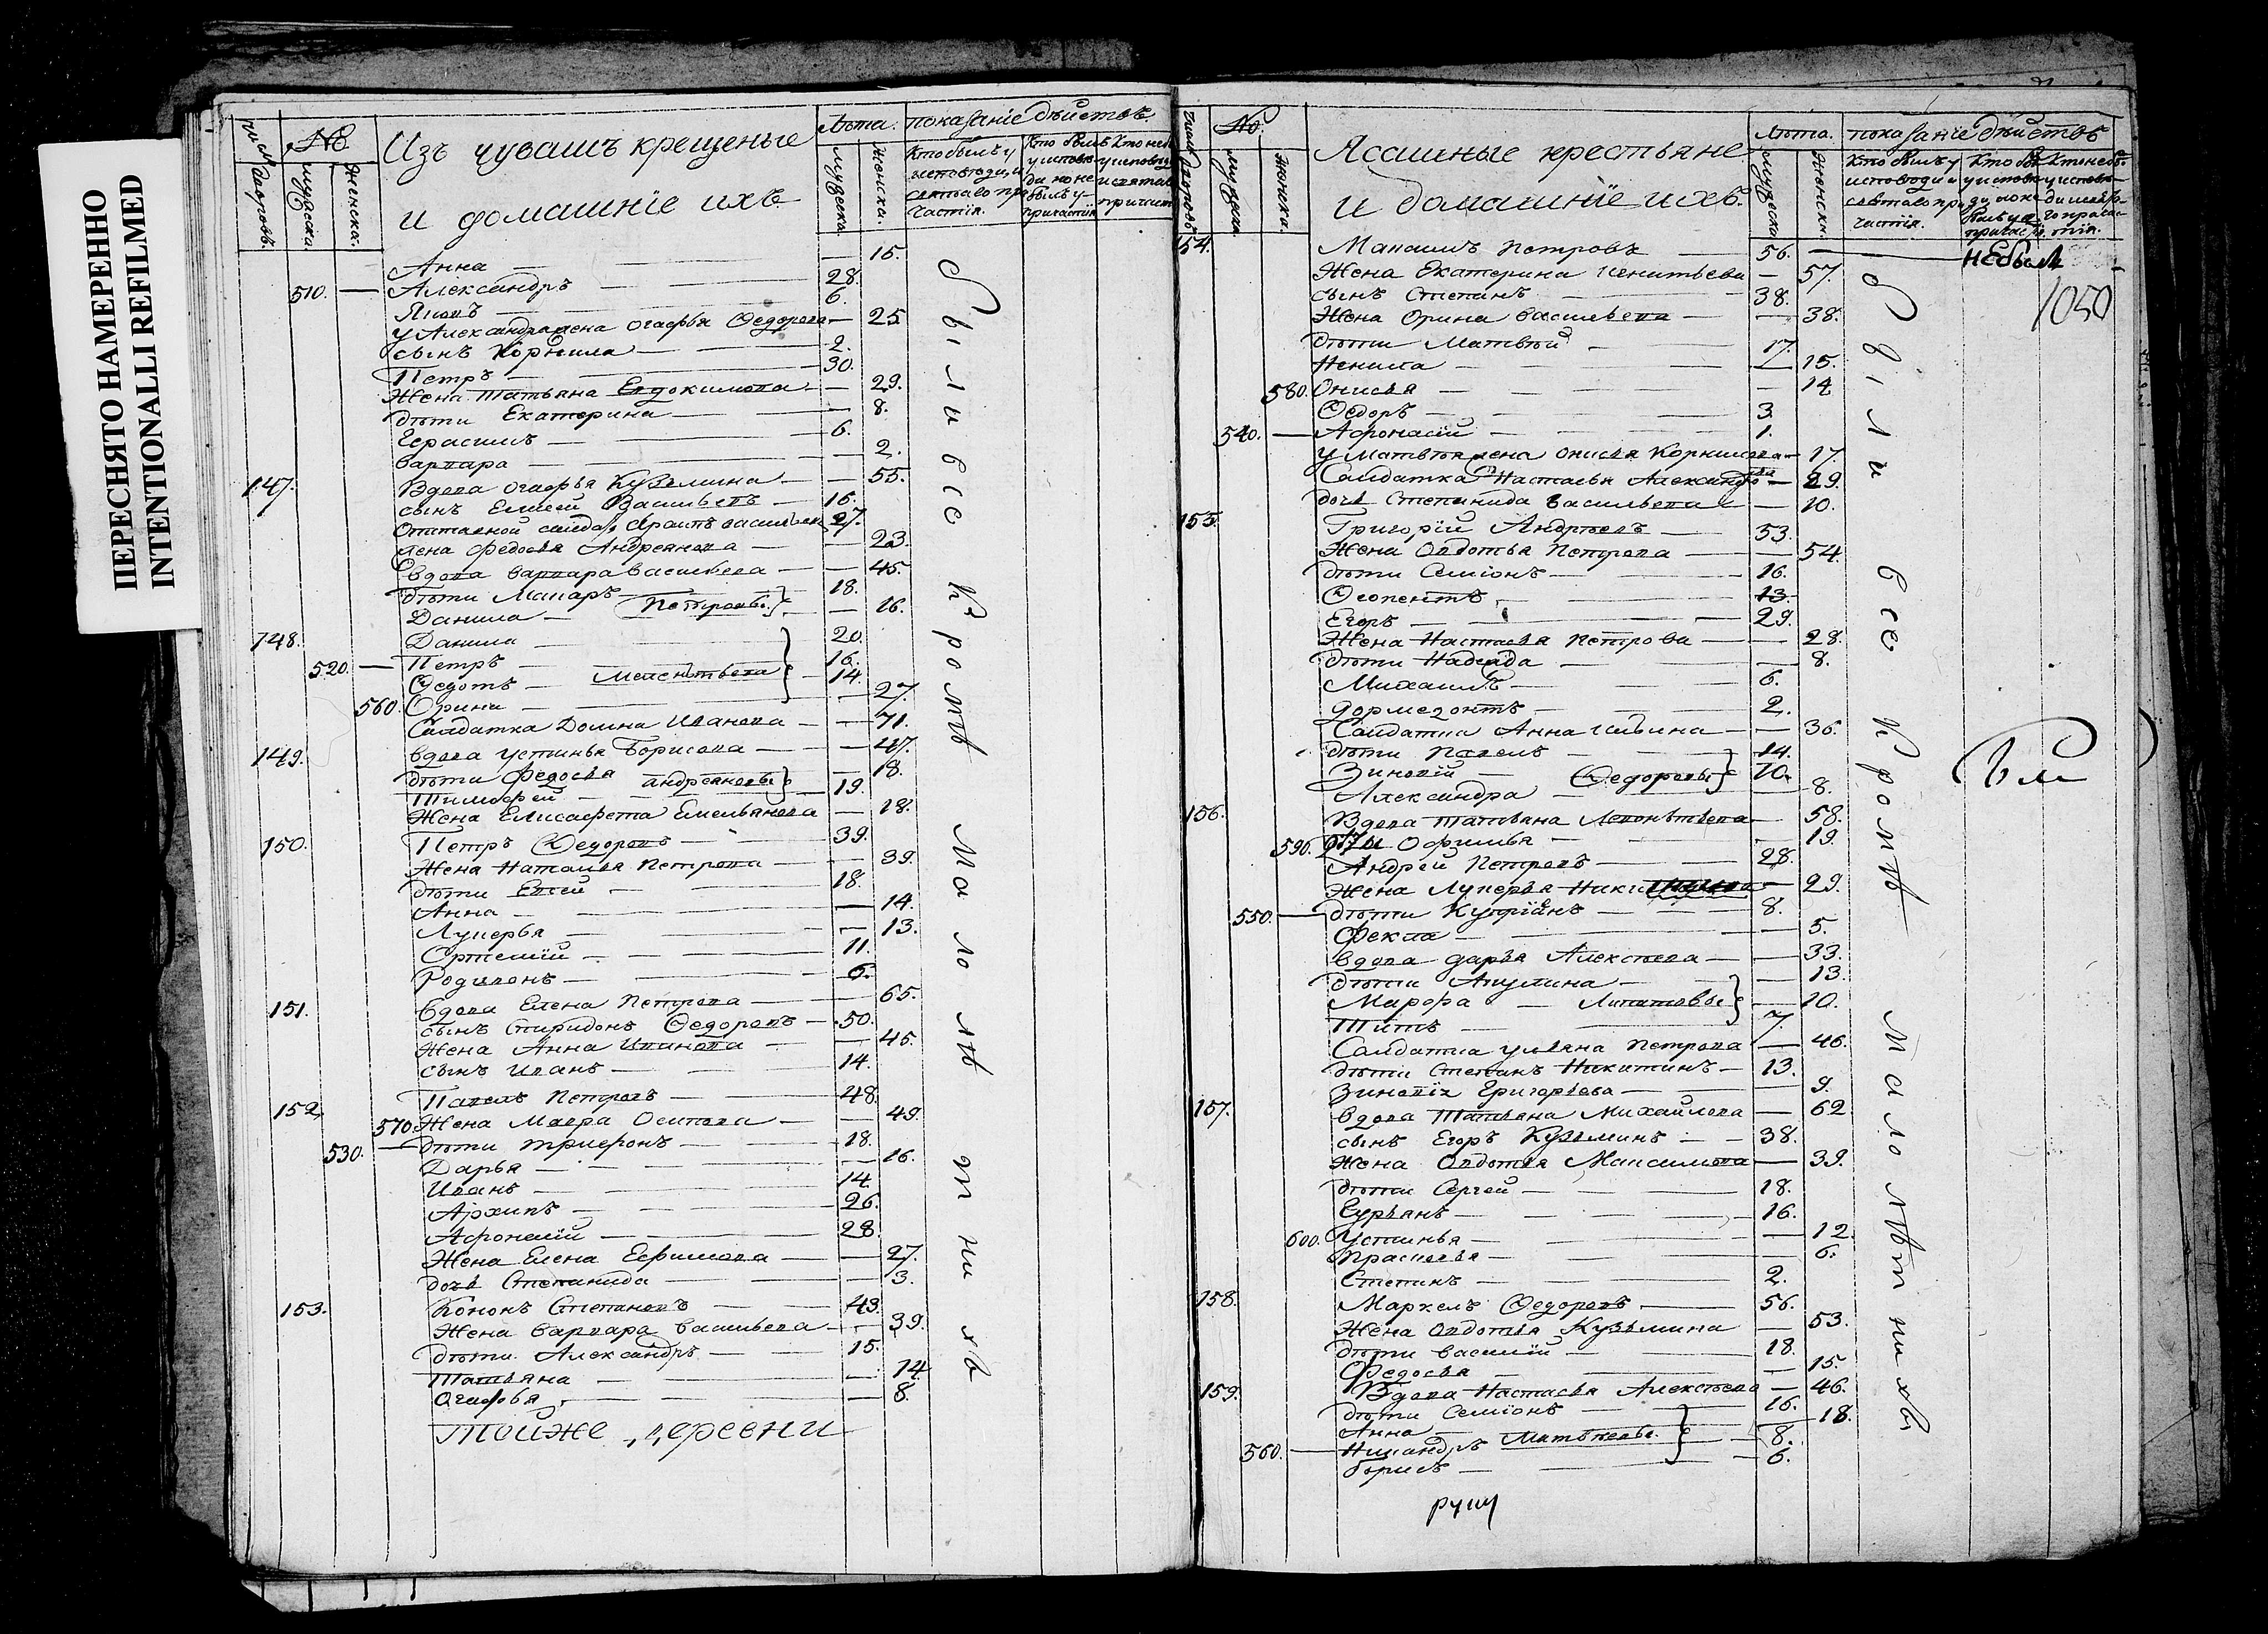 ПЕРЕСНЯТО НАМЕРЕННО
INTENTIONALLI REFILMED
число дворовъ.
№
мужеска.
женска.
Изъ чувашъ крещеные
и домашніе ихъ
Лѣта.
мужеска.
женска.
показаніе дѣйствъ.
Кто былъ у исповѣди и святаго причастія.
Анна — 15.
510. — Александръ — 28.
Яковъ — 6.
у Александра жена Огафья Федорова — 25
сынъ Корнила — 2.
Петръ — 30.
Жена Татьяна Евдокимова — 29.
дѣти Екатерина — 8.
Герасимъ — 6.
варвара — 2.
147. Вдова Огафья Кузьмина — 55.
сынъ Елисей Васильевъ — 15.
Отставной салдатъ васильевъ 27.
жена Федосья Андреянова — 23.
вдова варвара васильева — 45.
дѣти Макаръ — 18.
Данила — Петровы — 16.
148. Данила — 20.
520. — Петръ — 16.
Федотъ — Мелентьевы — 14.
560. Орина — 27.
Салдатка Домна Иванова — 71.
149. вдова Устинья Борисова — 47.
дѣти Федосья Андреяновы — 18.
Тимофей — 19.
Жена Елисафета Емельянова — 18.
150. Петръ Федоровъ — 39.
Жена Наталья Петрова — 39.
дѣти Евсей — 18.
Анна — 14.
Лукерья — 13.
Ортемій — 11.
Родивонъ — 6.
151. вдова Елена Петрова — 65.
сынъ Спиридонъ Федоровъ — 50.
Жена Анна Иванова — 45.
сынъ Иванъ — 14.
152. Павелъ Петровъ — 48.
570. Жена Мавра Осипова — 49.
530. — дѣти Трифонъ — 18.
Дарья — 16.
Иванъ — 14.
Архипъ — 26.
Афонасій — 28.
Жена Елена Ефимова — 27.
дочь Степанида — 3.
153. Кононъ Степановъ — 43.
Жена варвара васильева — 39.
дѣти Александръ — 15.
Татьяна — 14.
Огафья — 8.
Тойже деревни
были всѣ кромѣ малолѣтнихъ
число дворовъ
№
мужеска.
женска.
Ясашные крестьяне
и домашніе ихъ.
Лѣта.
мужеска
женска.
показаніе дѣйствъ
Кто былъ у исповѣди и святаго причастія.
154. Макаимъ Петровъ — 56. — НЕбыл
Жена Екатерина Игнатьева — 57.
сынъ Степанъ — 38.
Жена Орина васильева — 38.
дѣти Матвѣй — 17.
Ненила — 15.
580. Онисья — 14
Федоръ — 3.
540. — Афонасій — 1.
у Матвѣя жена Онисья Корнилова — 17.
Салдатка Настасья Александрова — 29.
дочь Степанида васильева — 10.
155. Григорій Андреевъ — 53.
Жена Овдотья Петрова — 54.
дѣти Семіонъ — 16.
Феопентъ — 13.
Егоръ — 29.
Жена Настасья Петрова — 28.
дѣти Надежда — 8.
Михаилъ — 6.
дормедонтъ — 2.
Салдатка Анна ильина — 36.
дѣти Павелъ — 14.
Зиновій — Федоровы — 10.
Александра — 8.
156. Вдова Татьяна Леонтьева — 58.
590. дѣти Офимья — 19.
Андрей Петровъ — 28.
Жена Лукерья — 29.
550. — дѣти Купріянъ — 8.
Фекла — 5.
вдова дарья Алексѣева — 33.
дѣти Акулина — 13.
Марфа — Липатовы — 10.
Титъ — 7.
Салдатка ульяна Петрова — 46.
дѣти Степанъ Никитинъ — 13.
Зиновія Григорьева — 9.
157. вдова Татьяна Михайлова — 62
сынъ Егоръ Кузьминъ — 38.
Жена Овдотья Максимова — 39.
дѣти Сергей — 18.
Гурьянъ — 16.
600. Устинья — 12.
Прасковья — 6.
Степанъ — 2.
158. Маркелъ Федоровъ — 56.
Жена Овдотья Кузьмина — 53.
дѣти василій — 18.
Федосья — 15.
159. Вдова Настасья Алексѣева — 46.
дѣти Семіонъ — 16.
Анна — Матвѣевы — 18.
560. — Никандръ — 8.
борисъ — 6.
были всѣ кромѣ малолѣтнихъ
1050